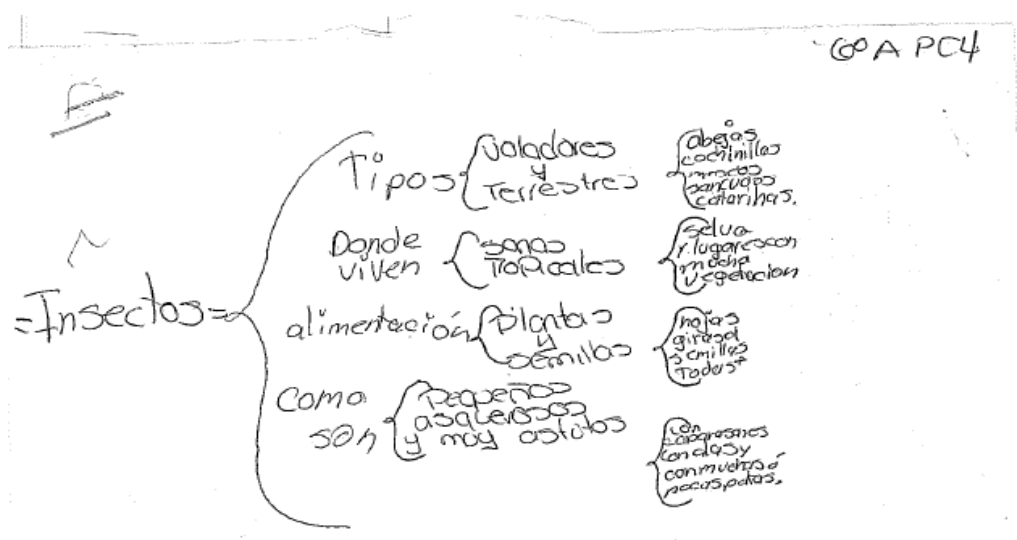 6º A PC4
=Insectos=
Tipos
voladores
y
Terrestres
abejas
cochinillas
moscos
sancudos
catarinas.
Donde
viven
sonas
Tropicales
selva
y lugares con
mucha
vegetacion
alimentación
plantas
y
semillas
hojas
girasol
semillas
Todas
Como
són
pequeños
asquerosos
y muy astutos
con
con alas y
con muchas ó
pocas patas.